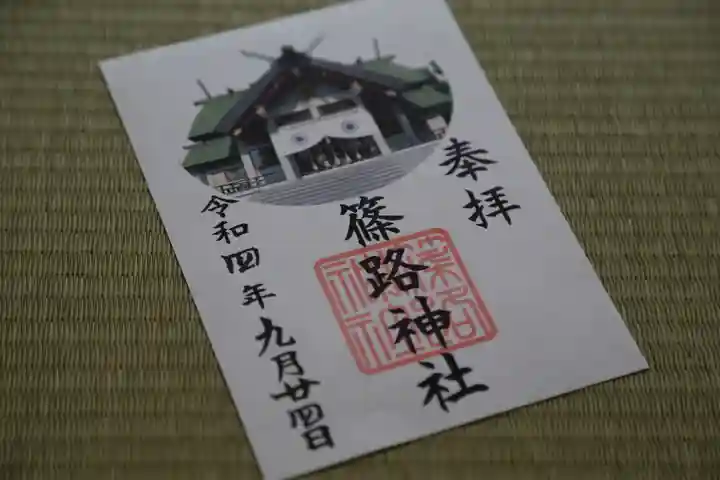 奉拝
篠路神社
令和四年九月廿四日
篠路神社